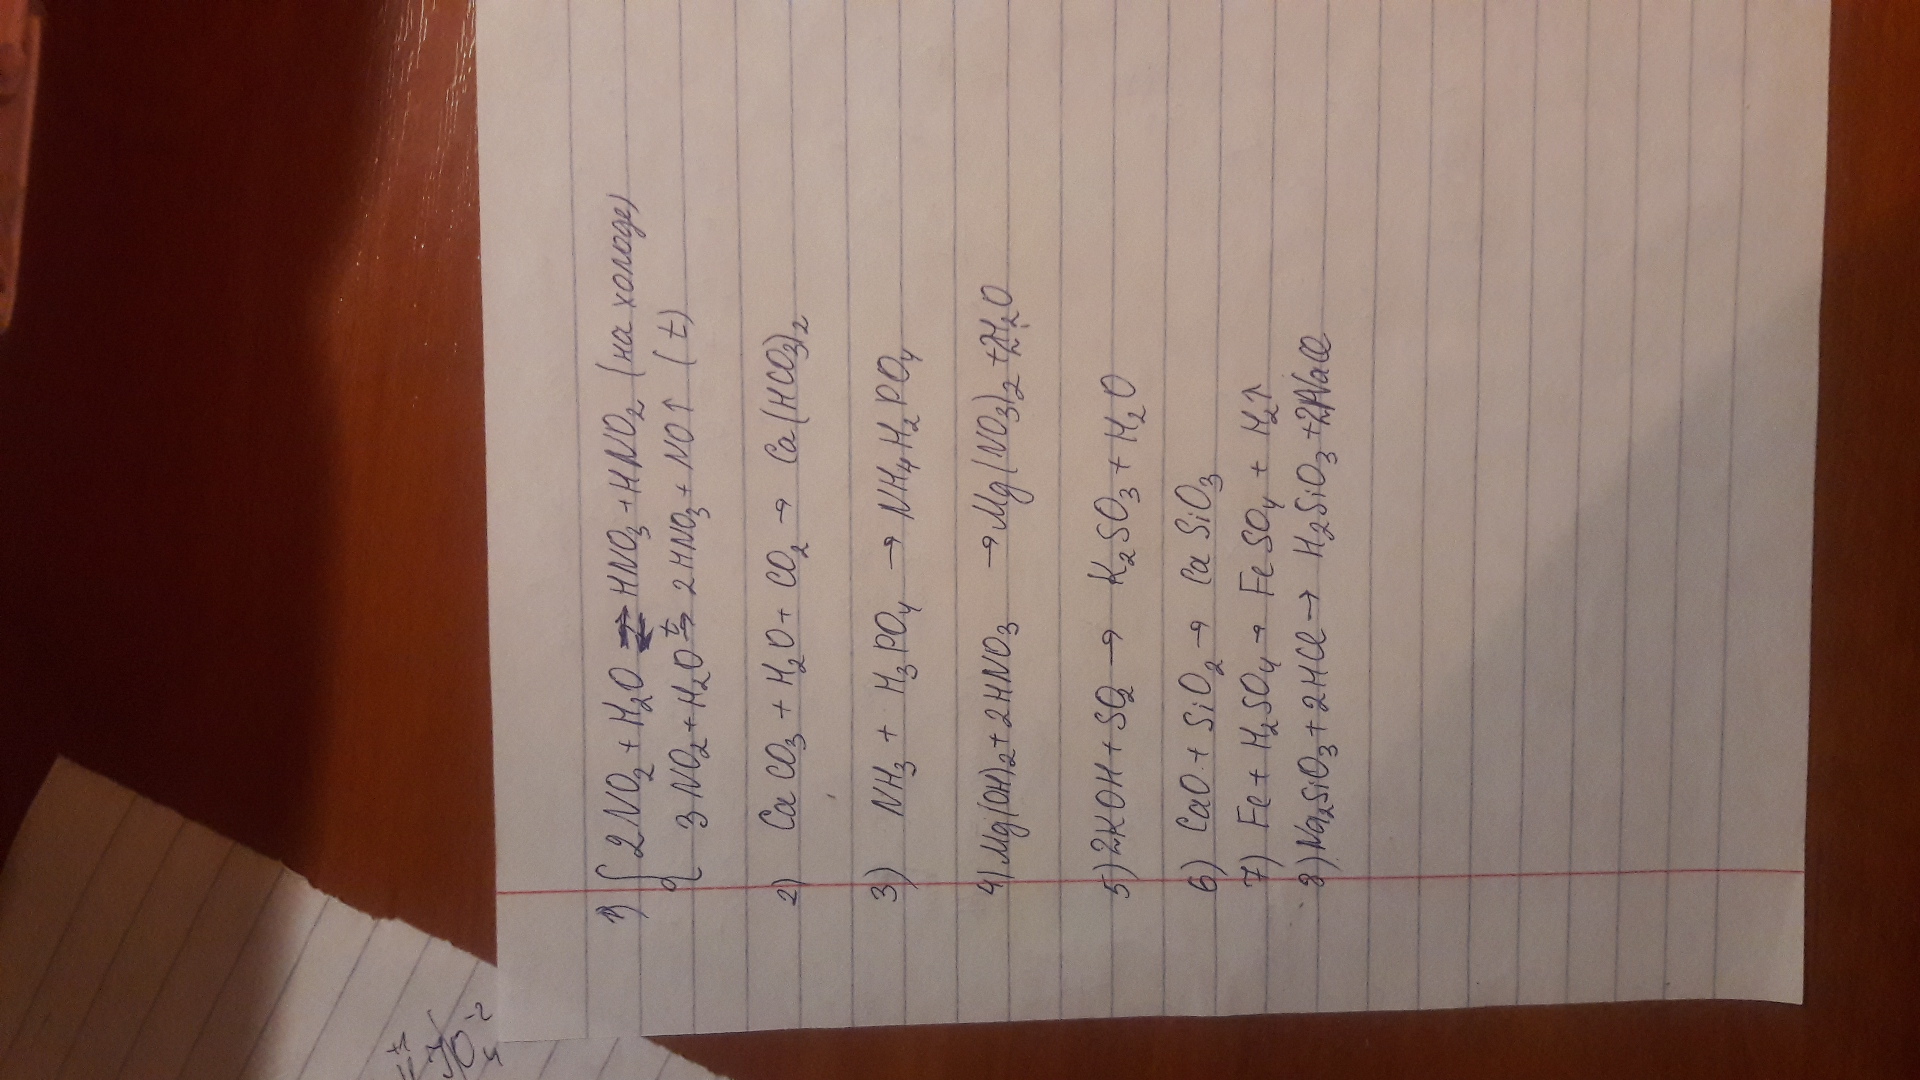 1) { 2NO₂ + H₂O ⇄ HNO₃ + HNO₂ (на холоде)
3NO₂ + H₂O →ᵗ 2HNO₃ + NO↑ (t)
2) CaCO₃ + H₂O + CO₂ → Ca(HCO₃)₂
3) NH₃ + H₃PO₄ → NH₄H₂PO₄
4) Mg(OH)₂ + 2HNO₃ → Mg(NO₃)₂ + 2H₂O
5) 2KOH + SO₂ → K₂SO₃ + H₂O
6) CaO + SiO₂ → CaSiO₃
7) Fe + H₂SO₄ → FeSO₄ + H₂↑
8) Na₂SiO₃ + 2HCl → H₂SiO₃ + 2NaCl